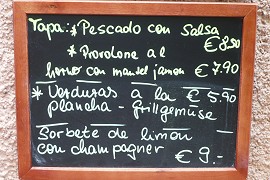 Tapa:*Pescado con Salsa
€ 8,50
* Provolone al
horno con mantel jamon € 7.90
* Verduras a la € 5.90
plancha - Grillgemüse
Sorbete de limon
con champagner € 9.-